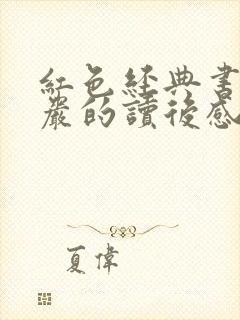 紅色經典書
嚴的讀後感
夏偉